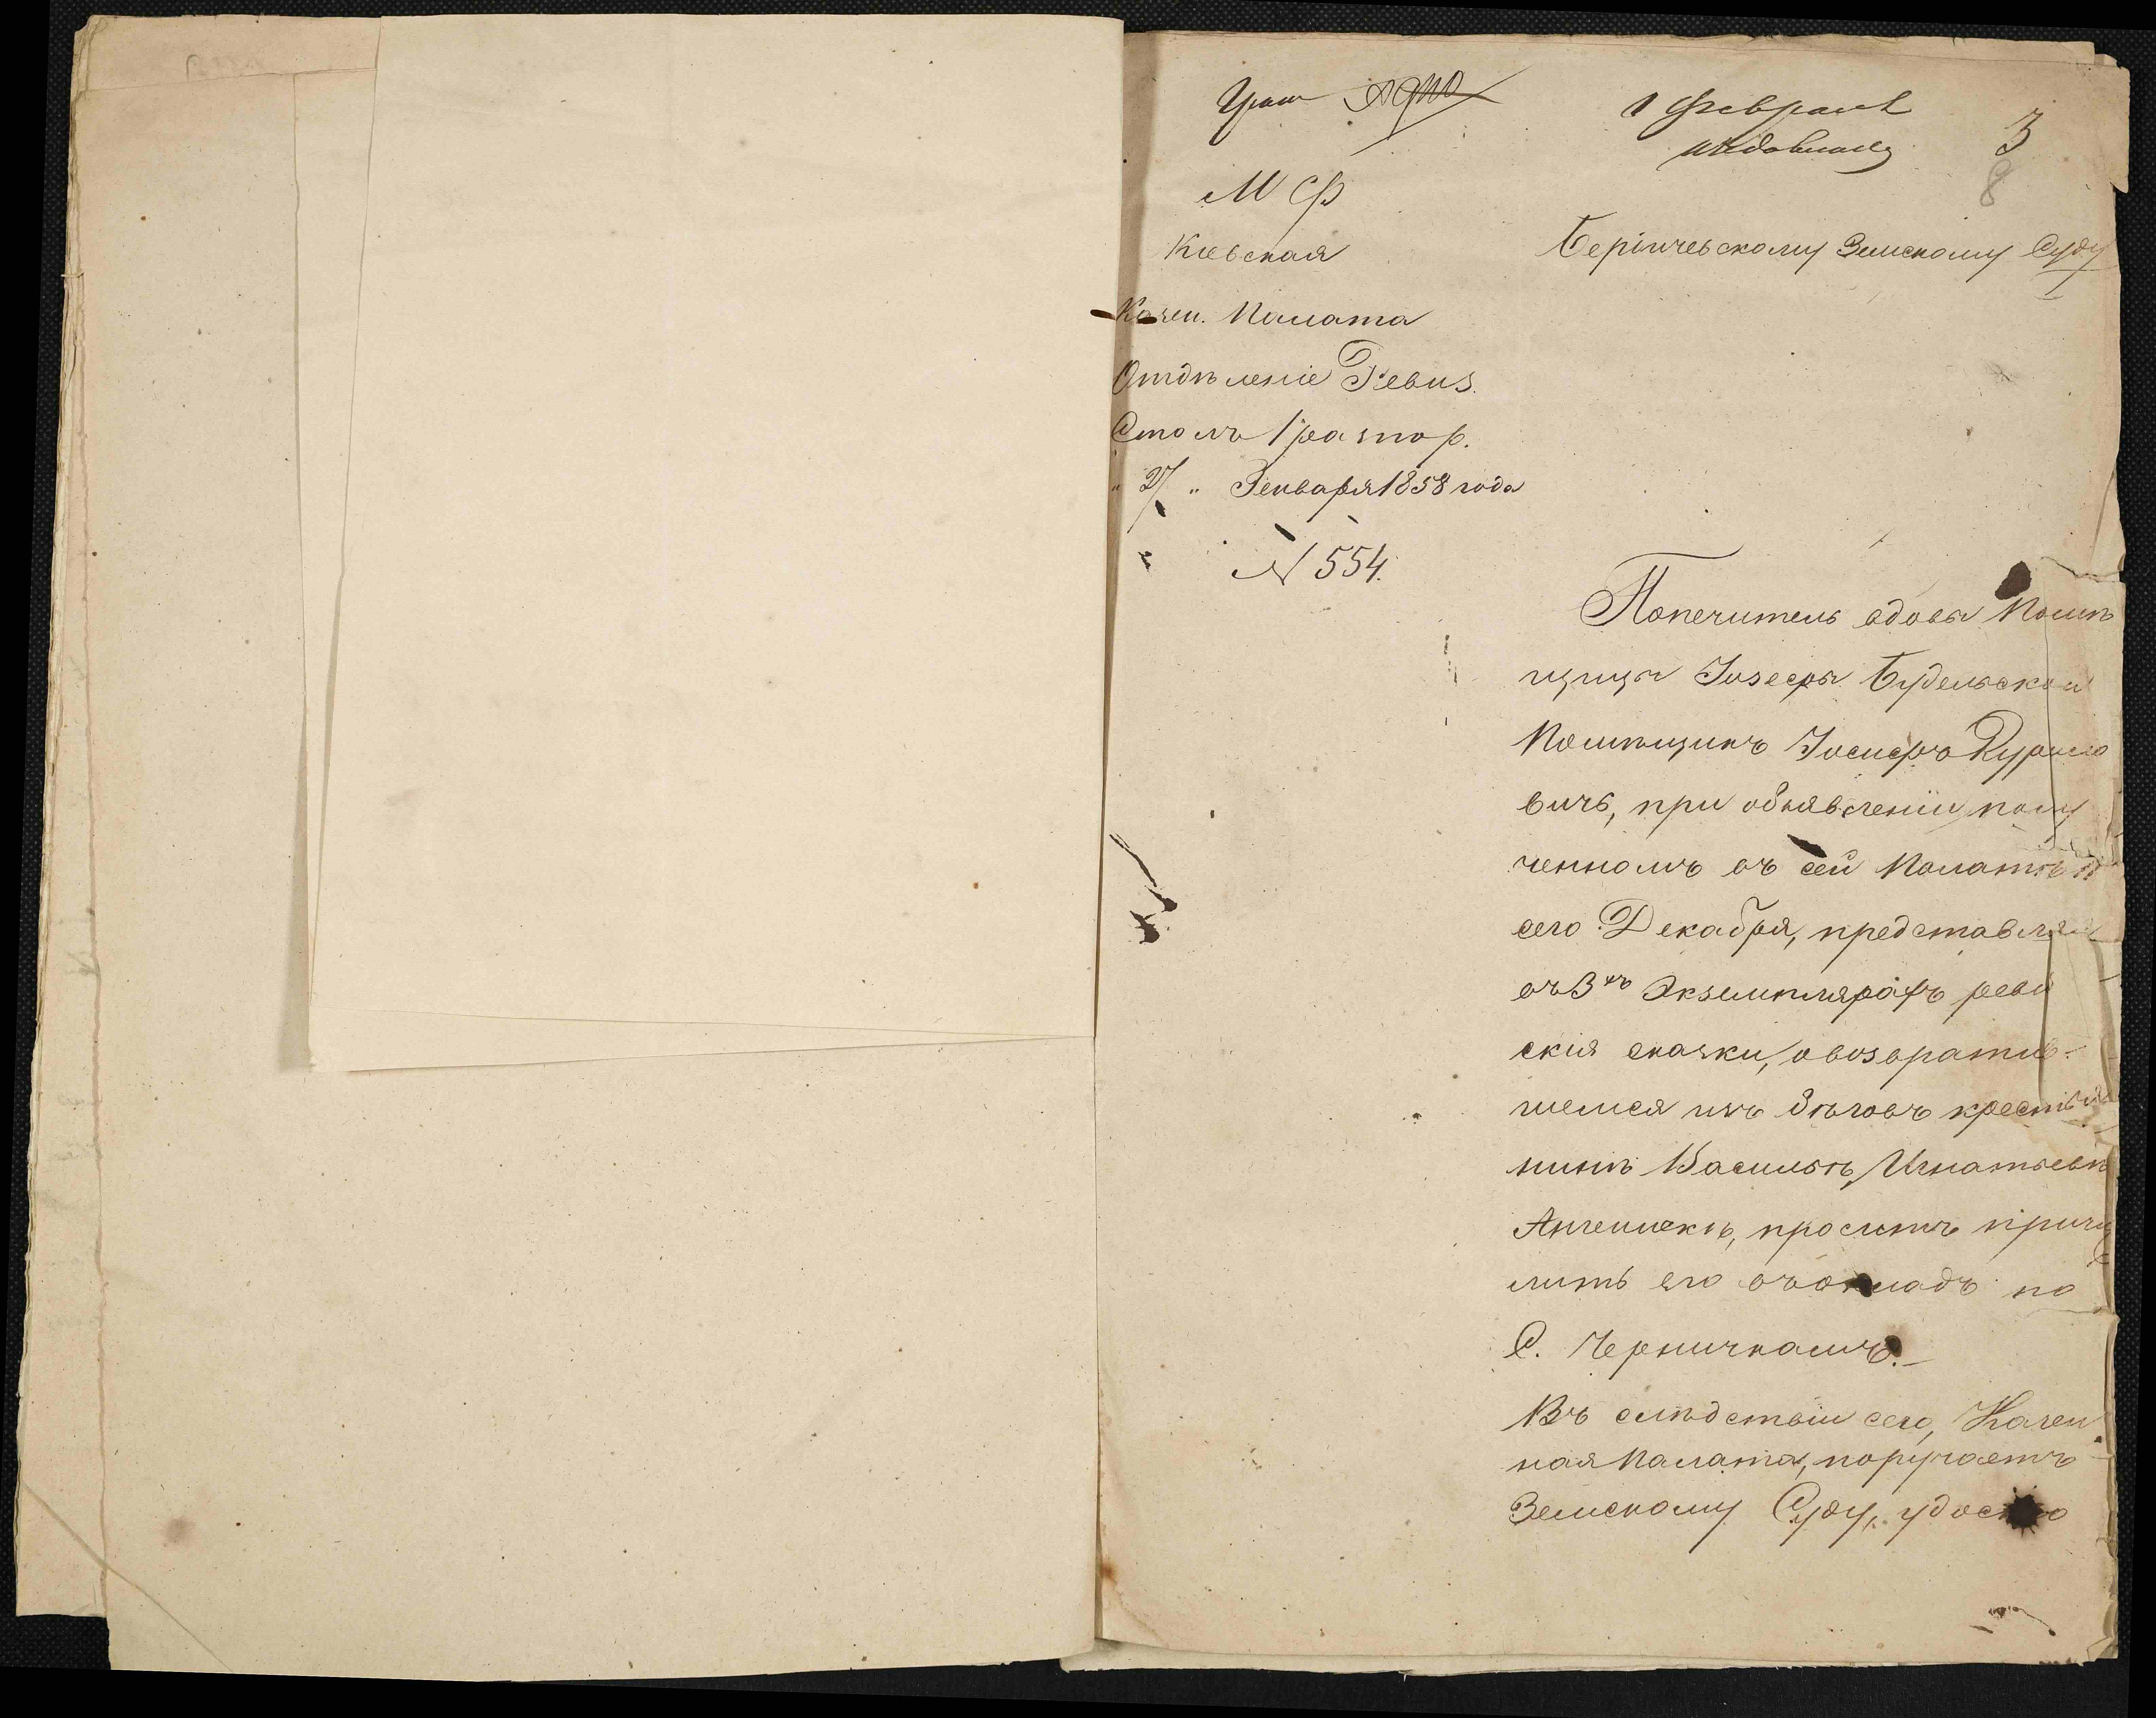 1 Февраля
3
8
М Ф
Кіевская
Казен. Палата
Отдѣленіе Ревиз.
Столъ 1 распор.
"27" Генваря 1858 года
№ 554.
Бердичевскому Земскому Суду
Попечитель вдовы Помѣ
щицы Іозефы Будельской
Помѣщикъ Іосифъ
вичъ, при объявленіи, полу
ченномъ въ сей Палатѣ
сего Декабря, представляя
въ 3хъ Экземплярахъ реви
скія сказки, о возвратив-
шемся изъ бѣговъ крестья
нинѣ Василіѣ Игнатьевѣ
просилъ причи
лить его въ окладъ по
С. Черничкамъ.
Въ слѣдствіи сего, Казен
ная Палата, поручаетъ
Земскому Суду, удосто